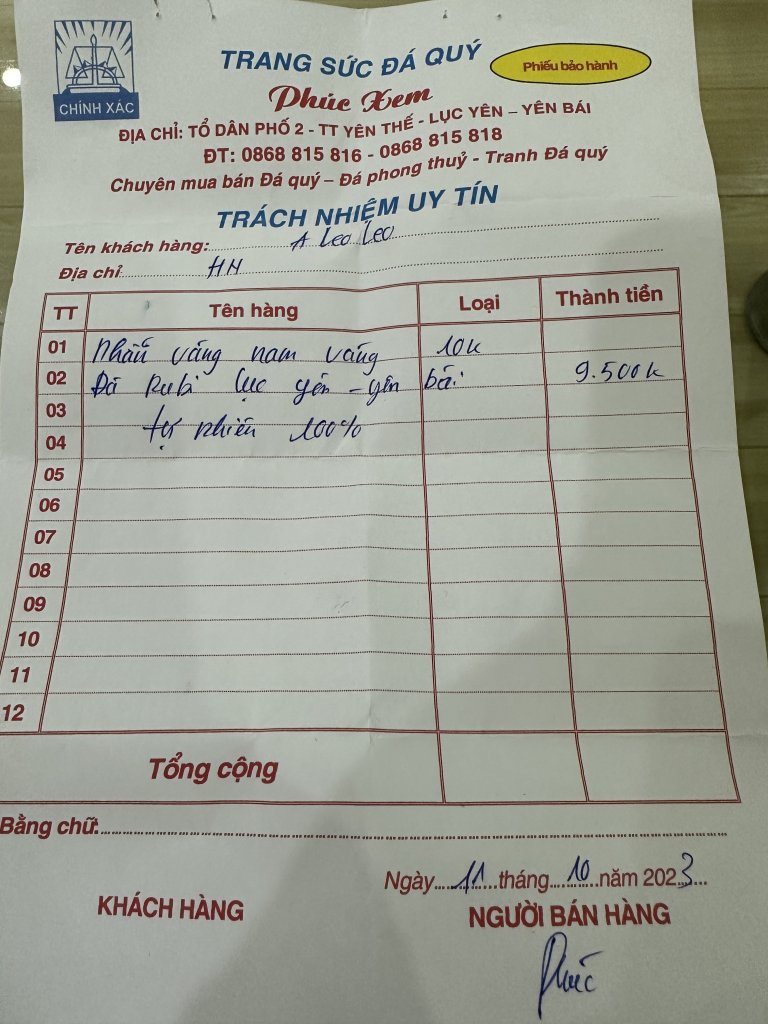 CHÍNH XÁC
TRANG SỨC ĐÁ QUÝ
Phiếu bảo hành
Phúc Xem
ĐỊA CHỈ: TỔ DÂN PHỐ 2 - TT YÊN THẾ - LỤC YÊN – YÊN BÁI
ĐT: 0868 815 816 - 0868 815 818
Chuyên mua bán Đá quý – Đá phong thuỷ - Tranh Đá quý
TRÁCH NHIỆM UY TÍN
Tên khách hàng: A Leo Leo
Địa chỉ HN
TT Tên hàng Loại Thành tiền
01 Nhẫn vàng nam vàng 10k
02 Đá Rubi lục yên - yên bái 9.500k
03
04 tự nhiên 100%
05
06
07
08
09
10
11
12
Tổng cộng
Bằng chữ:
Ngày 11 tháng 10 năm 2023
KHÁCH HÀNG NGƯỜI BÁN HÀNG
Phúc